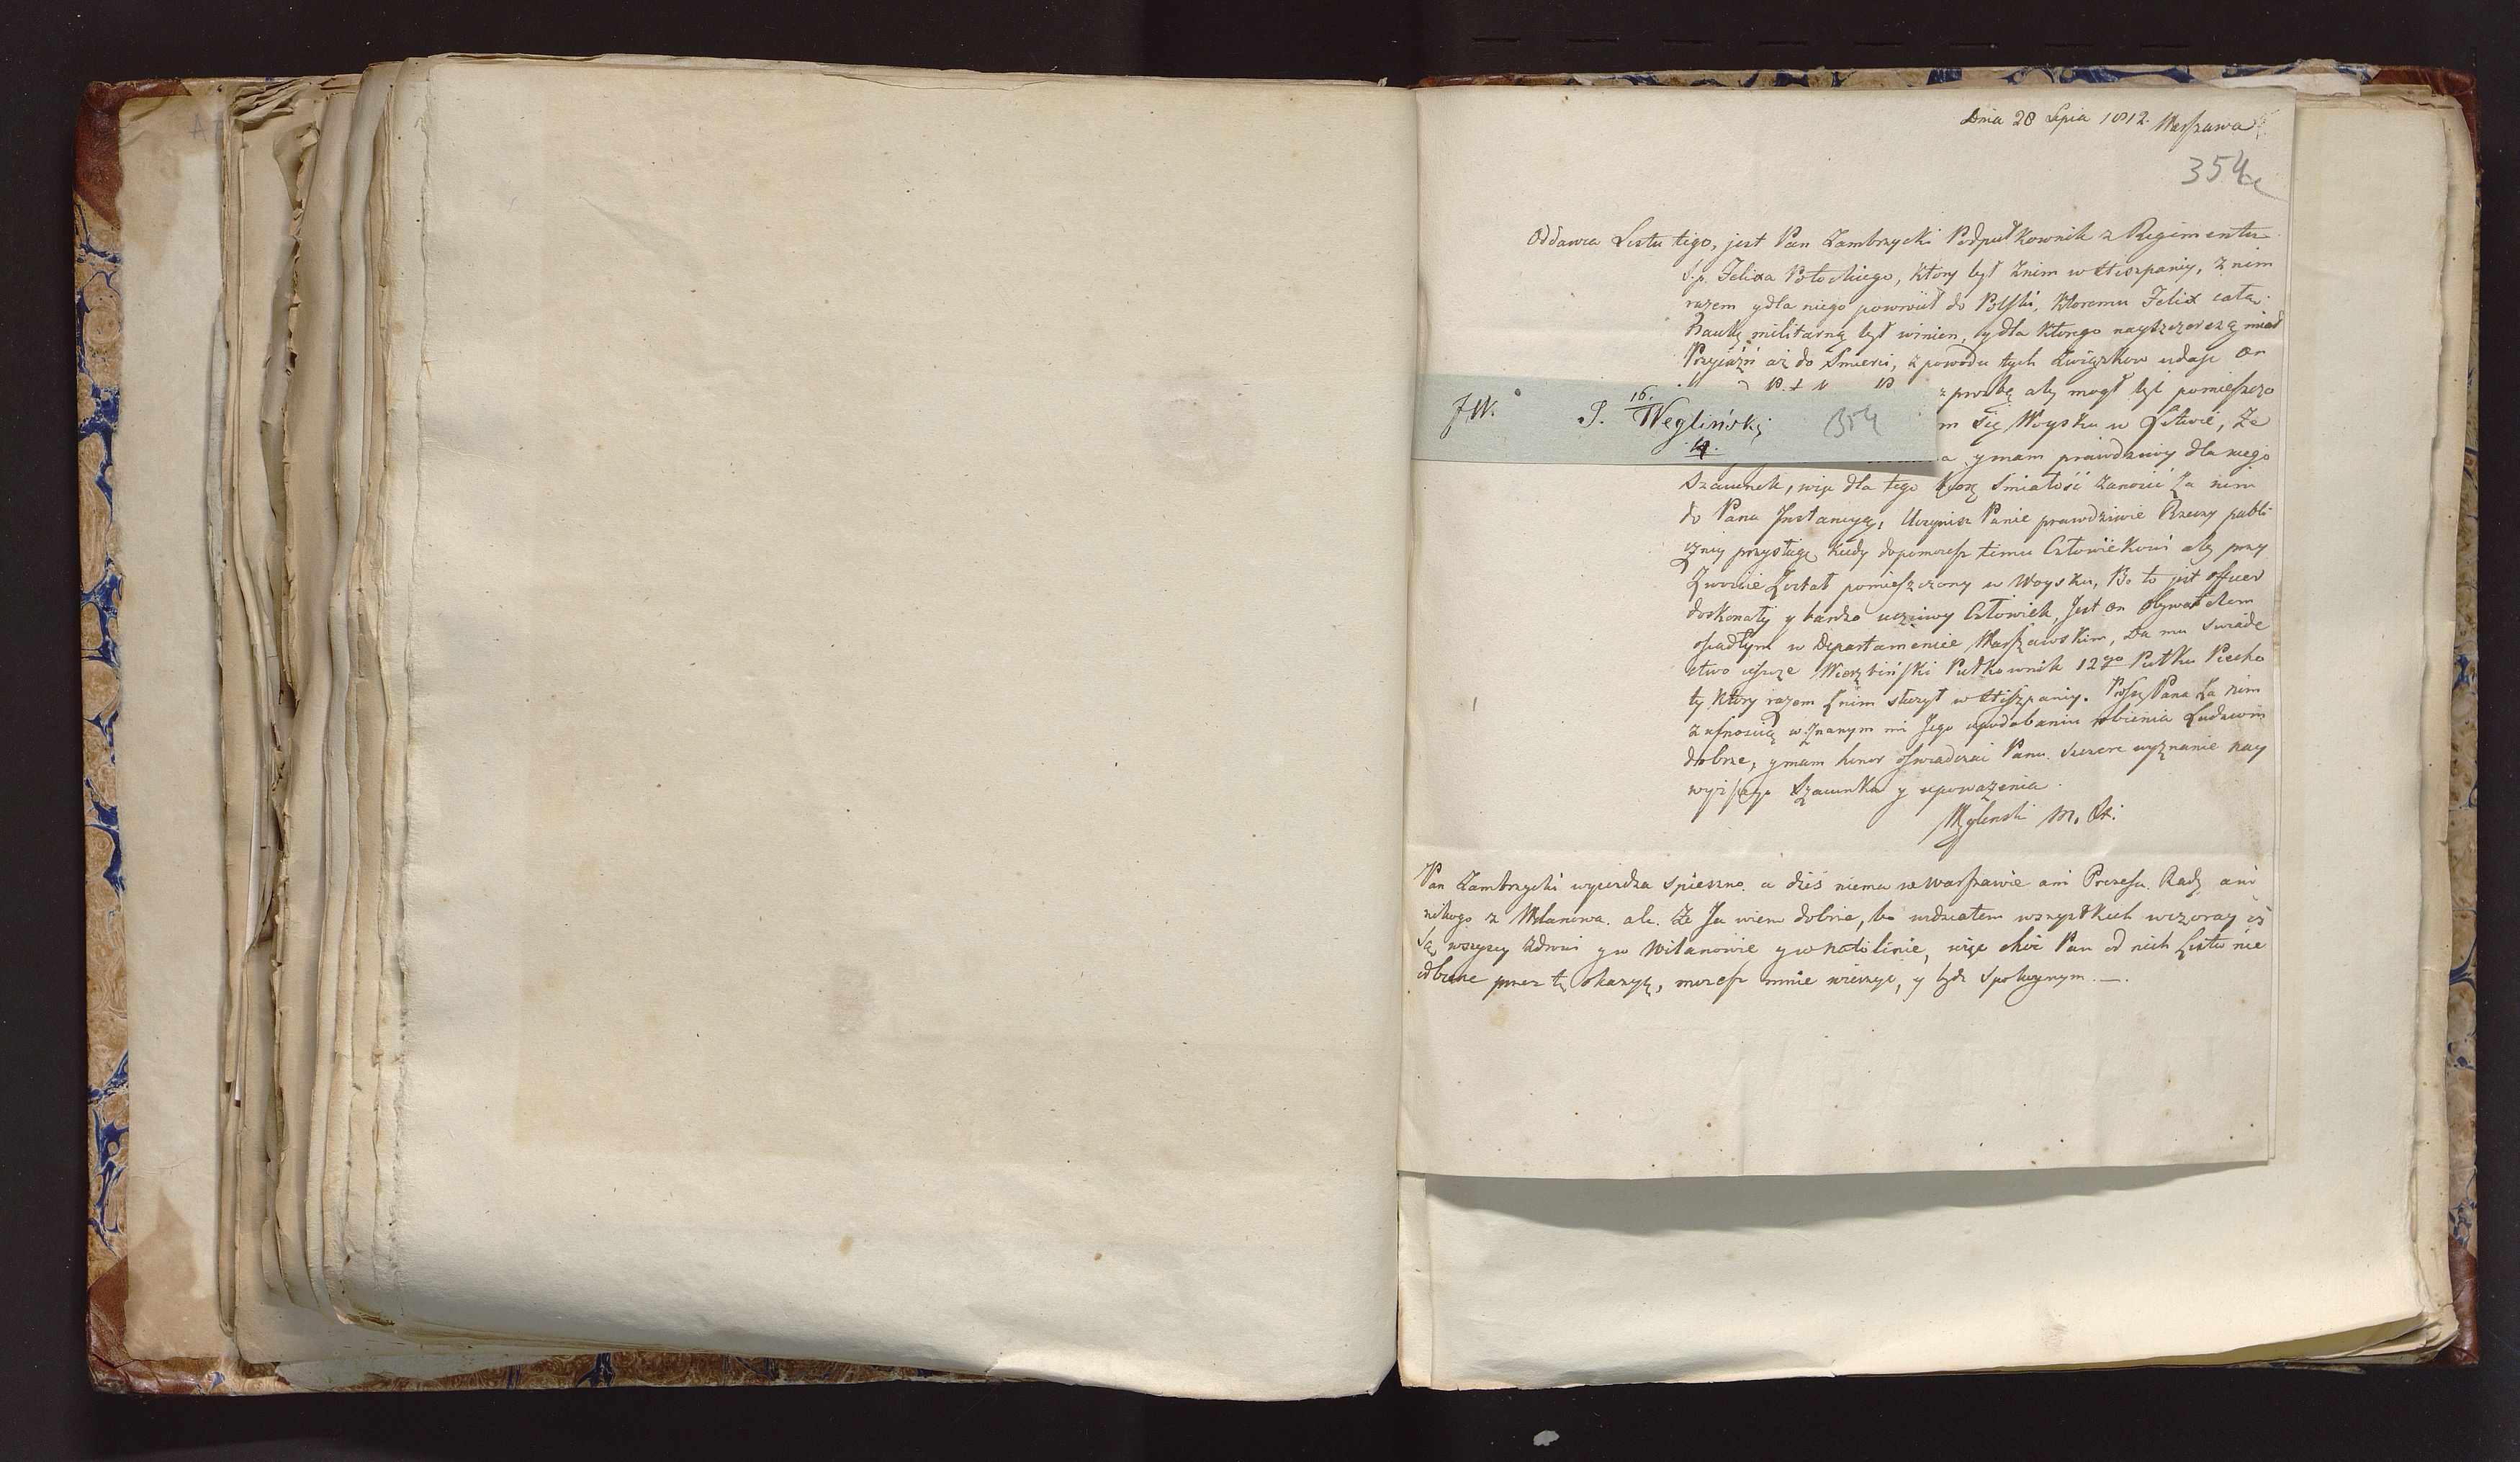 Dnia 28 Lipia 1812. Warszawa
354
Oddawca Listu tego, jest Pan Zambrzycki Podpułkownik z Regimentu
S.p. Felixa Potockiego, ktory był z nim w Hiszpanij, z nim
razem y dla niego powrócił do Polski, ktoremu Felix całą
Naukę militarną był winien, y dla ktorego nayszczerszą miał
Przyjaźń aż do Smierci, z powodu tych Związkow udaje on
z prozbą aby mogł być pomieszczo
J W.
S. 16. Węglinski
4.
354
m się Woysku w Litwie, Ze
a y mam prawdziwy dla niego
Szacunek, więc dla tego biorę smiałość zanosić Za nim
do Pana Instancyą, Uczynisz Panie prawdziwie Rzeczy publi
czney przysługę, kiedy dopomożesz temu Człowiekowi aby przy
Zwoicie Został pomieszczony w Woysku, Bo to jest officer
doskonały y bardzo uczciwy Człowiek, Jest on Obywatelem
osiadłym w Departamencie Warszawskim, Da mu swiade
ctwo Wierzbiński Pułkownik 12go Pułku Piecho
ty ktory razem z nim słuzył w Hiszpanij. Proszę Pana Za nim
z ufnoscią w znanym mi Jego upodobaniu robienia Ludziom
dobrze, y mam honor oswiadczać Panu szczere wyznanie nay
wyższego Szacunku y upoważenia.
Węglenski M. Pr:
Pan Zambrzycki wyiezdza spieszno. a dziś niema w Warszawie ani Prezesa Rady ani
nikogo z Wilanowa. ale Ze Ja wiem dobrze, bo widziałem wszystkich wczoray iż
Są wszyscy zdrowi y w Wilanowie y w Natolinie, więc choć Pan od nich Listu nie
odbierze przez tę okazyę, możesz mnie wierzyć, y bydź spokoynym. —.